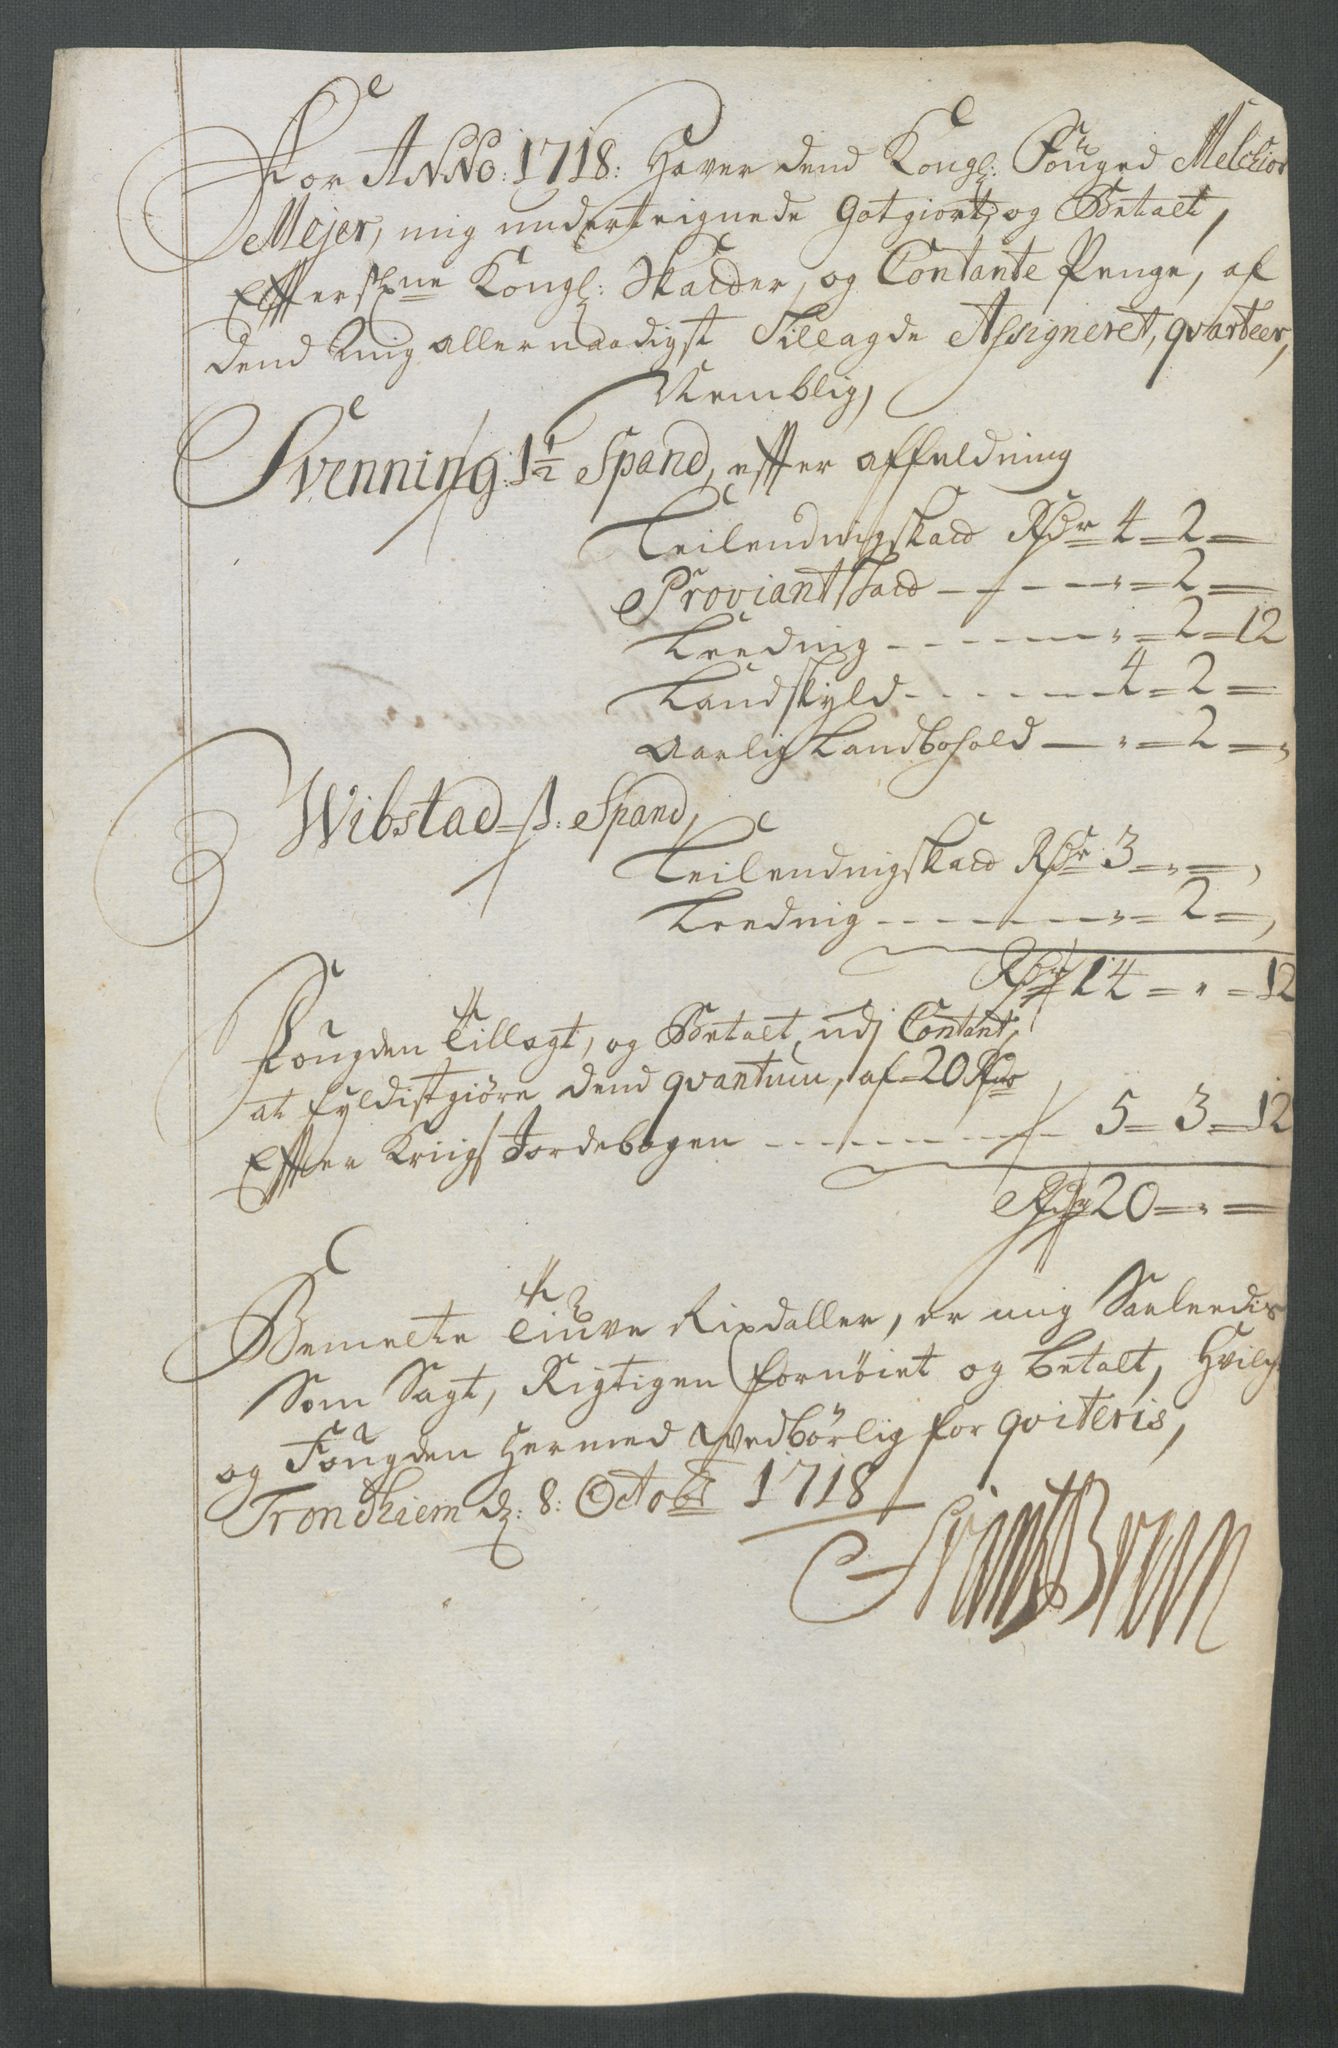 For ANNo: 1718: Haver dend Kongl: Fouged Melchior
Mejer, mig underteignede Gotgiort, og Betalt,
Effterskrne Kongl: Skatter, og Contante Penge, af
dend mig allernaadigst Tillagde Assigneret, qvarteer,
Nemblig,
Svenning: 1½ Spand, effter affældning
Leilendingskatt Rdr 4 = 2 =
Proviantskatt - - - " = 2 =
Leeding - - - " = 2 = 12
Landskyld - - - 4 = 2 =
Aarlig Landbohold - " = 2 = "
Wibstad = 1: Spand,
Leilendingskatt Rdr 3 = " =
Leeding - - - " = 2 =
Rdr 14 = " = 12
Fougden Tillagt, og Betalt udj Contant,
at fyldistgiøre dend qvantum, af 20 Rdr
Effter Krigs Jordebogen - - - 5 = 3 = 12
Rdr 20 = " =
Bemelte Tiuve Rixdaller, er mig Saaleedis
Som Sagt, Rigtigen fornøiet og betalt, Hvilche
og Fougden Hermed Vedbørlig for qviteris,
Trondhiem d: 8: Octobr 1718
Brun